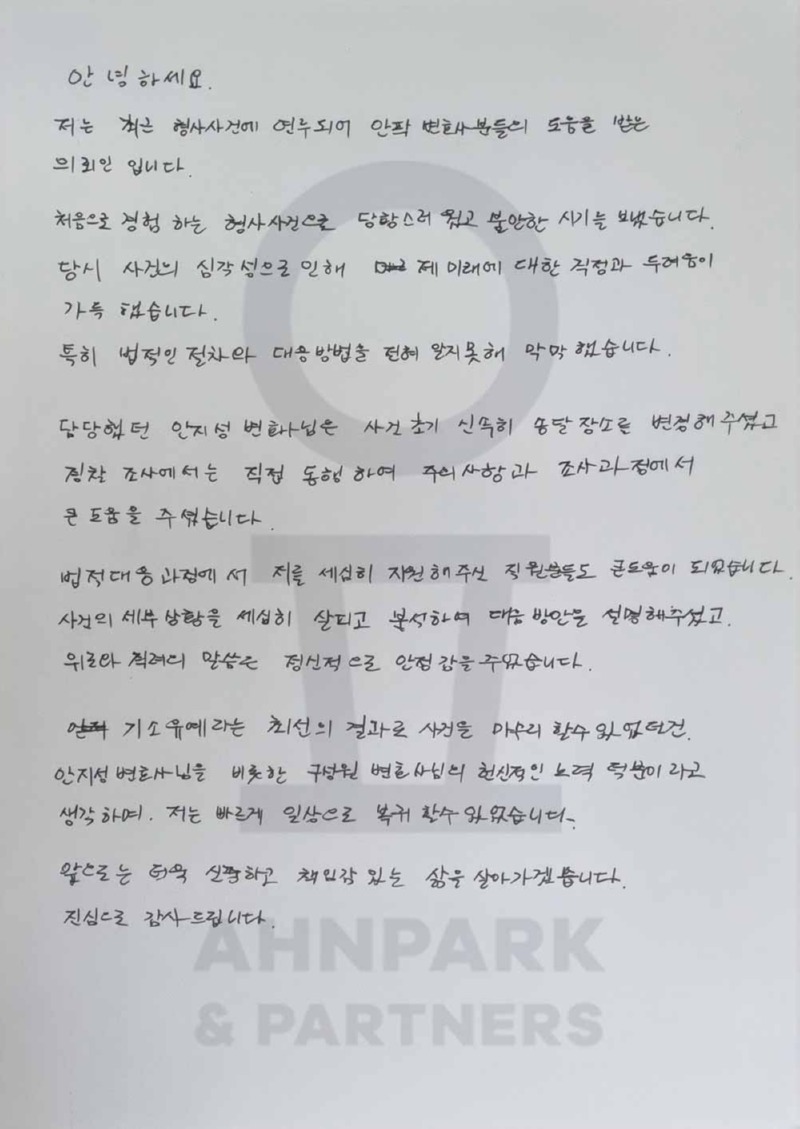 안녕하세요.
저는 최근 형사사건에 연루되어 안팍 변호사분들의 도움을 받은
의뢰인 입니다.
처음으로 경험 하는 형사사건으로 당황스러 웠고 불안한 시기를 보냈습니다.
당시 사건의 심각성으로 인해 제 미래에 대한 걱정과 두려움이
가득 했습니다.
특히 법적인 절차와 대응방법을 전혀 알지못해 막막 했습니다.
담당했던 안지성 변호사님은 사건 초기 신속히 송달 장소를 변경해주셨고
경찰 조사에서는 직접 동행 하여 주의사항과 조사과정에서
큰 도움을 주셨습니다.
법적대응과정에서 저를 세심히 지원해주신 직원분들도 큰도움이 되었습니다.
사건의 세부상황을 세심히 살피고 분석하며 대응 방안을 설명해주셨고.
위로와 격려의 말씀은 정신적으로 안정감을 주었습니다.
기소유예라는 최선의 결과로 사건을 마무리 할수 있었던건.
안지성변호사님을 비롯한 구성원 변호사님의 헌신적인 노력 덕분이라고
생각하며. 저는 빠르게 일상으로 복귀 할수 있었습니다.
앞으로는 더욱 신중하고 책임감 있는 삶을 살아가겠습니다.
진심으로 감사드립니다.
AHNPARK
& PARTNERS